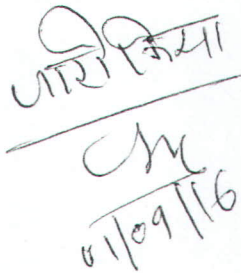 जारी किया
01/09/16